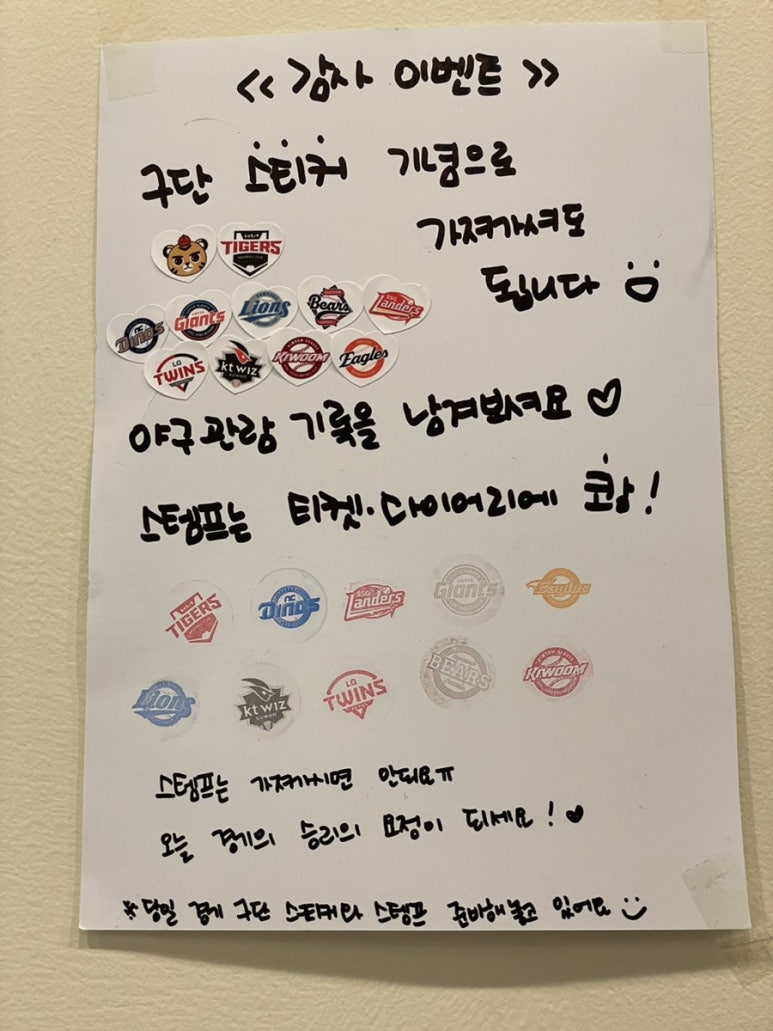 << 감사 이벤트 >>
구단 스티커 기념으로
가져가셔도
됩니다
KIA TIGERS
NC Dinos Giants Lions Bears SSG Landers
LG TWINS kt wiz suwon KIWOOM Eagles
야구관람 기록을 남겨보셔요♡
스템프는 티켓·다이어리에 쾅!
TIGERS NC Dinos SSG Landers LOTTE Giants Eagles
Lions kt wiz suwon LG TWINS BEARS KIWOOM
스템프는 가져가시면 안되요ㅠ
오늘 경기의 승리의 요정이 되세요!♥
※당일 경기 구단 스티커와 스템프 준비해놓고 있어요